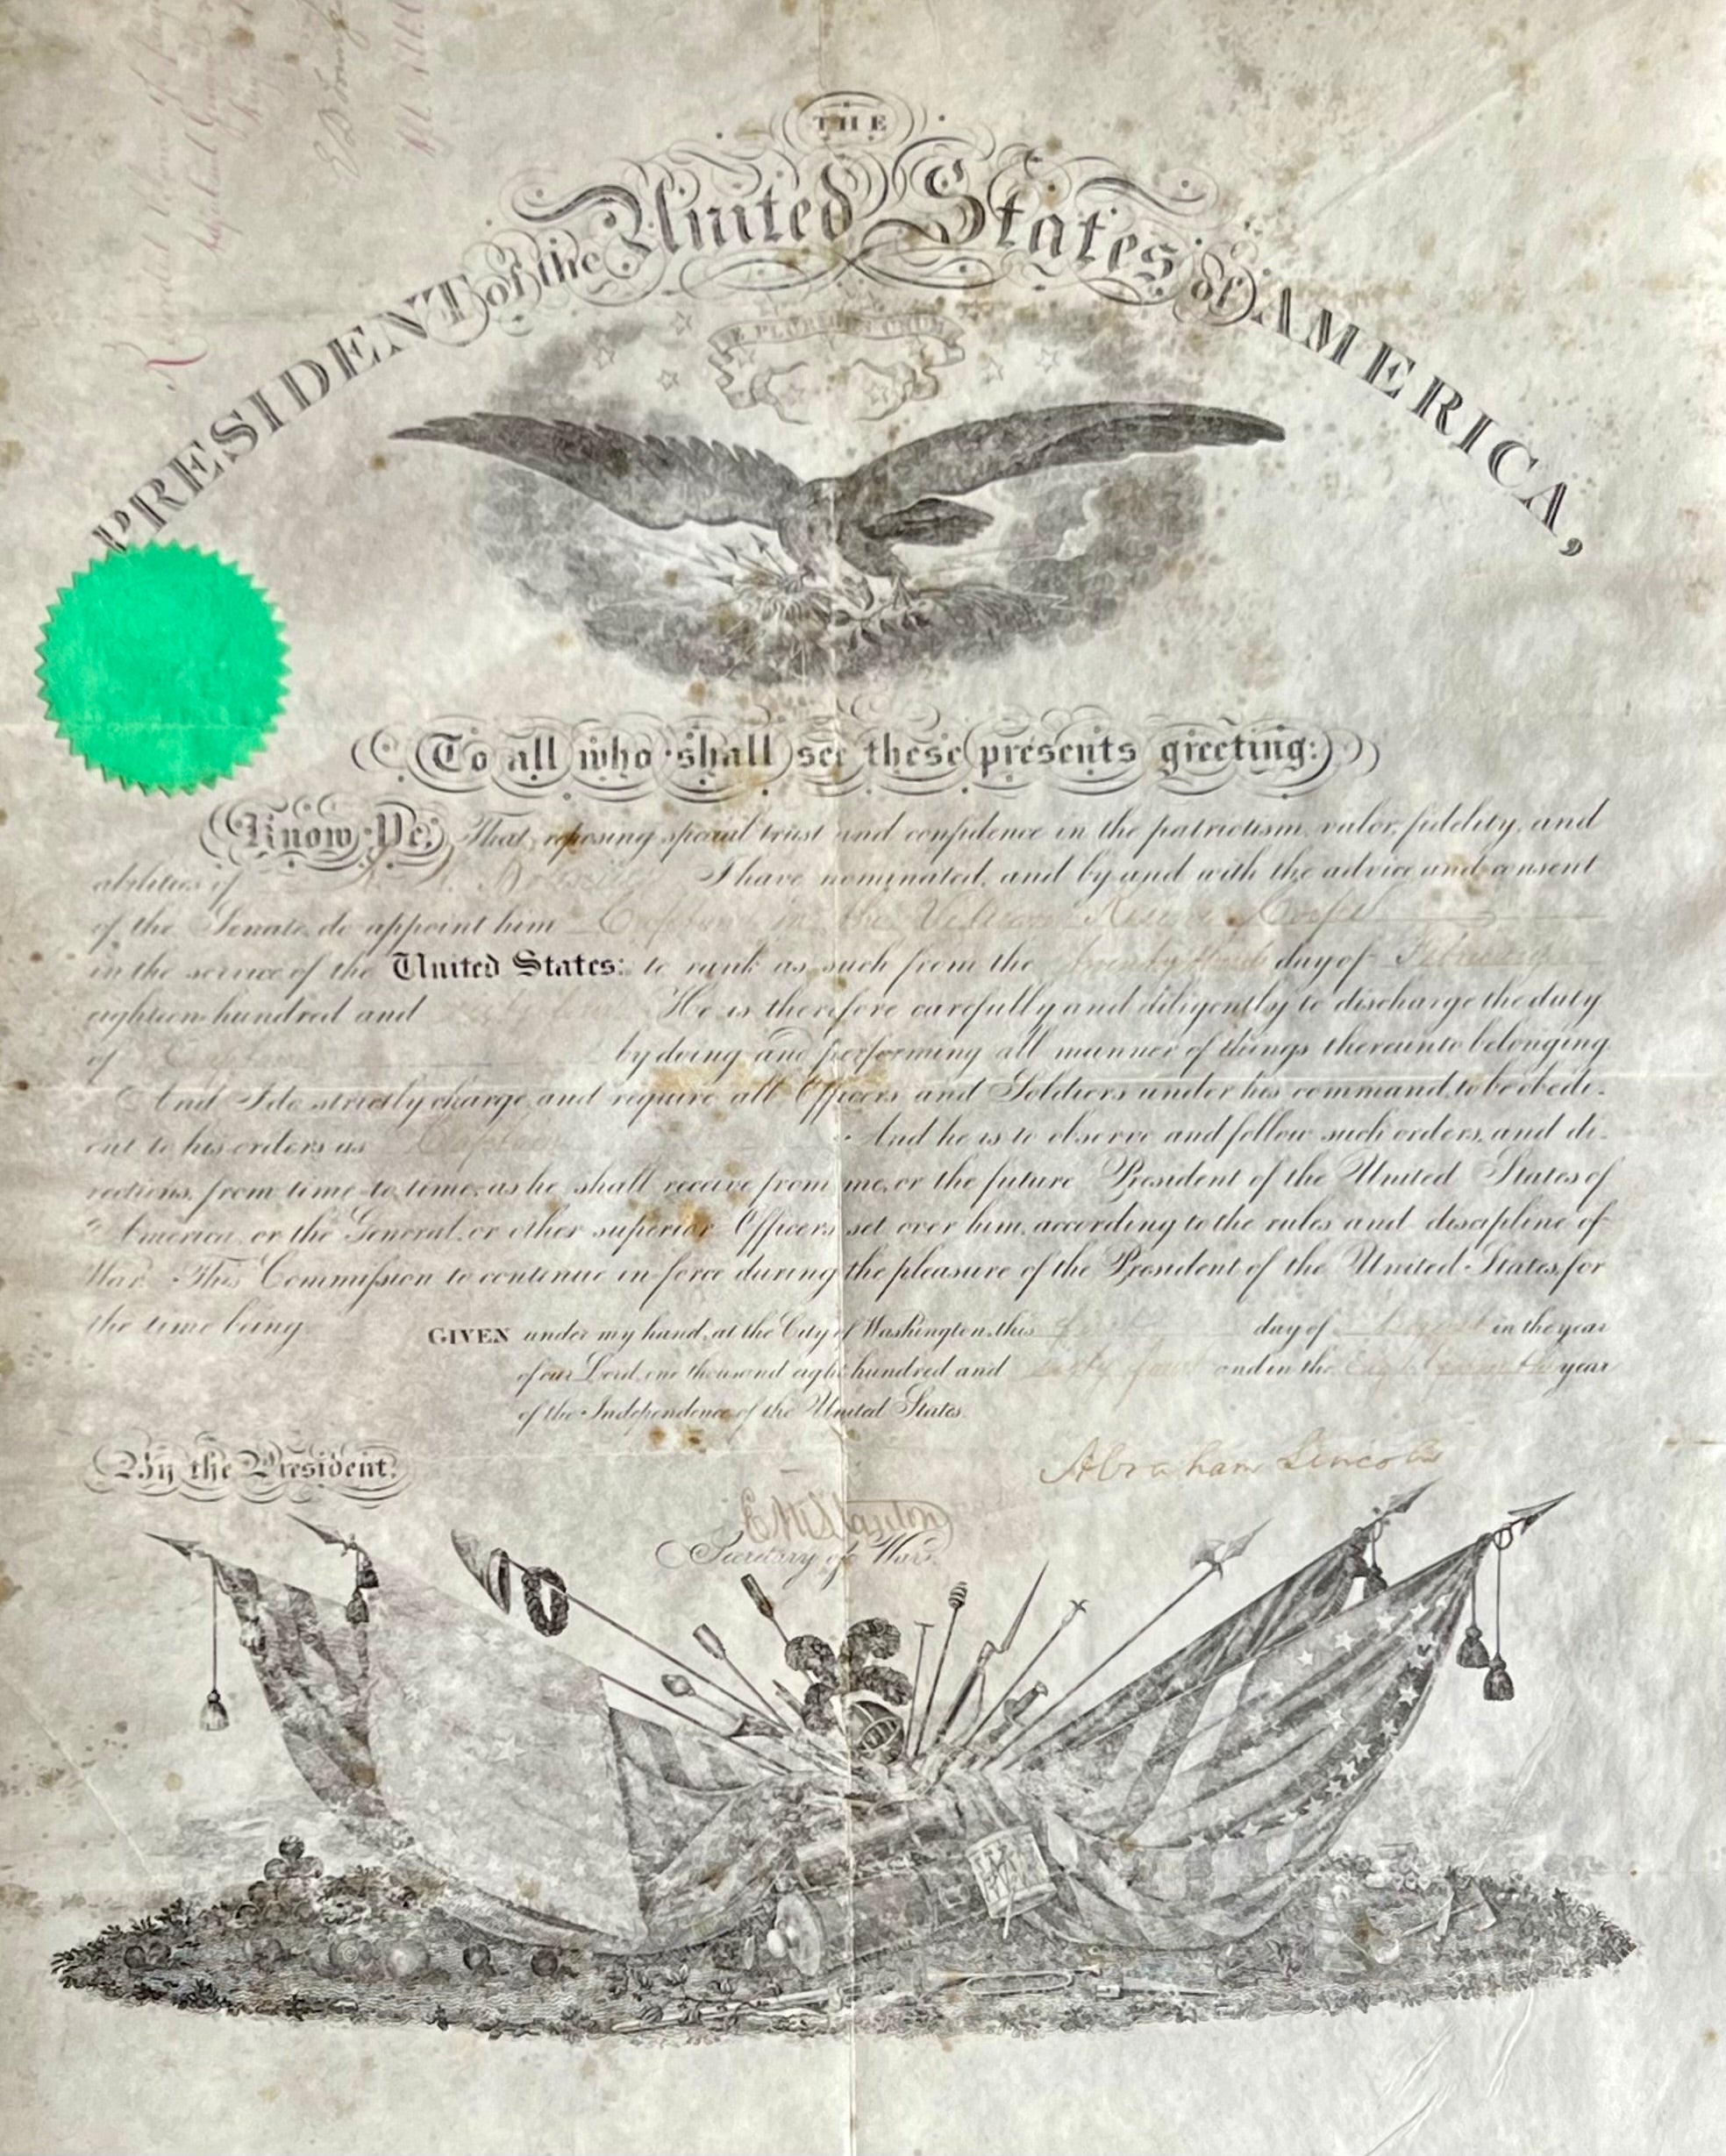 THE
PRESIDENT of the United States of AMERICA,
E PLURIBUS UNUM
To all who shall see these presents greeting:
Know Ye, That reposing special trust and confidence in the patriotism, valor, fidelity, and
abilities of I have nominated, and by and with the advice and consent
of the Senate, do appoint him Captain in the Veteran Reserve Corps
in the service of the United States: to rank as such from the day of February
eighteen hundred and He is therefore carefully and diligently to discharge the duty
of Captain by doing and performing all manner of things thereunto belonging.
And I do strictly charge, and require all Officers and Soldiers under his command, to be obedi-
ent to his orders as Captain And he is to observe and follow such orders, and di-
rections, from time to time, as he shall receive from me, or the future President of the United States of
America, or the General, or other superior Officers set over him, according to the rules and discipline of
War. This Commission to continue in force during the pleasure of the President of the United States, for
the time being.
GIVEN under my hand, at the City of Washington, this first day of August in the year
of our Lord, one thousand eight hundred and sixty four and in the Eighty ninth year
of the Independence of the United States.
By the President.
Abraham Lincoln
Secretary of War.